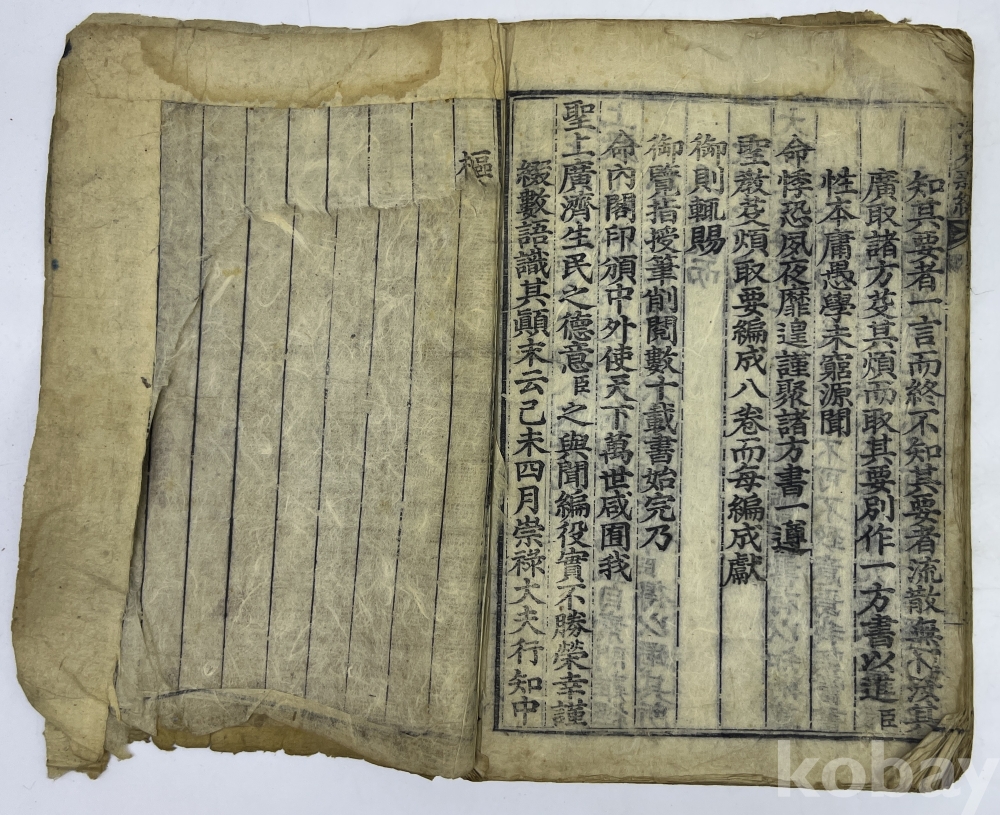 知其要者一言而終不知其要者流散無窮其
廣取諸方芟其煩而取其要別作一方書以進臣
性本庸愚學未窮源聞
命悸恐夙夜靡遑謹聚諸方書一遵
聖敎芟煩取要編成八卷而每編成獻
御則輒賜
御覽指授筆削閱數十載書始完乃
命內閣印頒中外使天下萬世咸囿我
聖上廣濟生民之德意臣之與聞編役實不勝榮幸謹
綴數語識其顚末云己未四月崇祿大夫行知中
樞
kobay